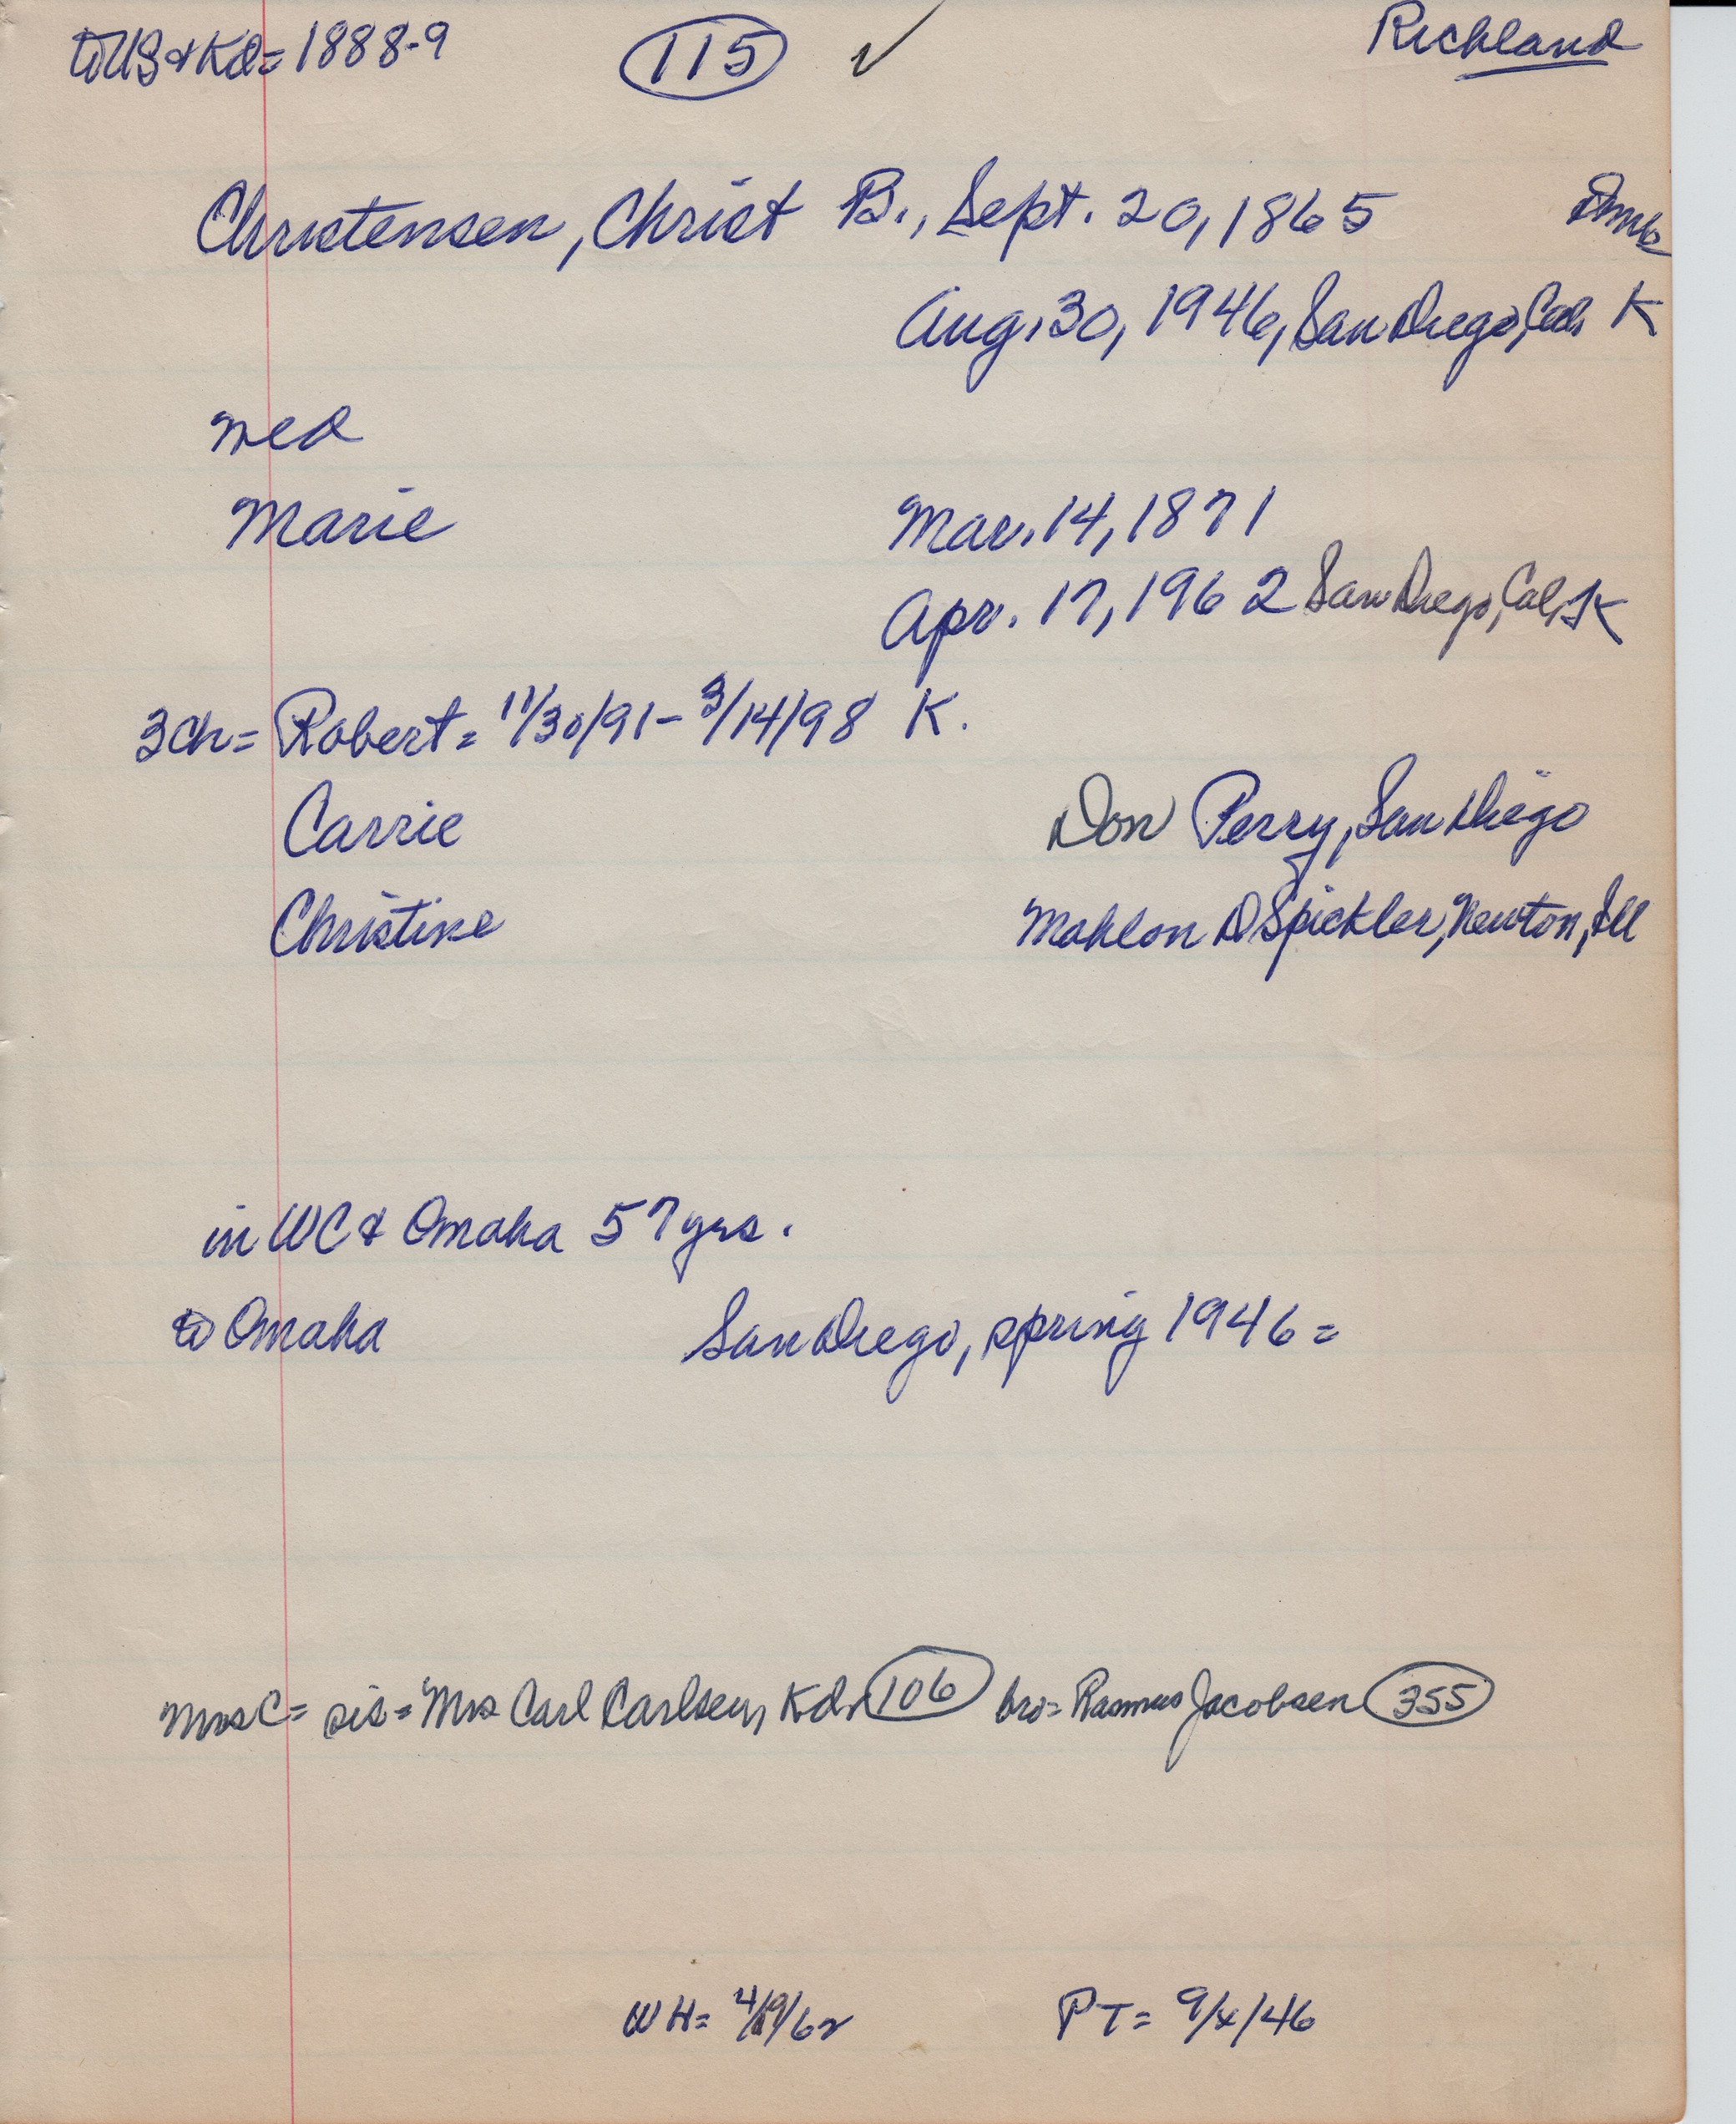 to US & Kd = 1888-9 115 ✓ Richland
Christensen, Christ B., Sept. 20, 1865 Dnmk
Aug. 30, 1946, San Diego, Cal. K
med
Marie Mar. 14, 1871
Apr. 17, 1962 San Diego, Cal, K
3 ch = Robert = 11/30/91 - 3/14/98 K.
Carrie Don Perry, San Diego
Christine Mahlon D Spickler, Newton, Ill
in WC & Omaha 57 yrs.
to Omaha San Diego, spring 1946 =
Mrs C = sis = Mrs Carl Carlsen, Kd. 106 bro = Rasmus Jacobsen 355
WH = 4/19/62 PT = 9/4/46